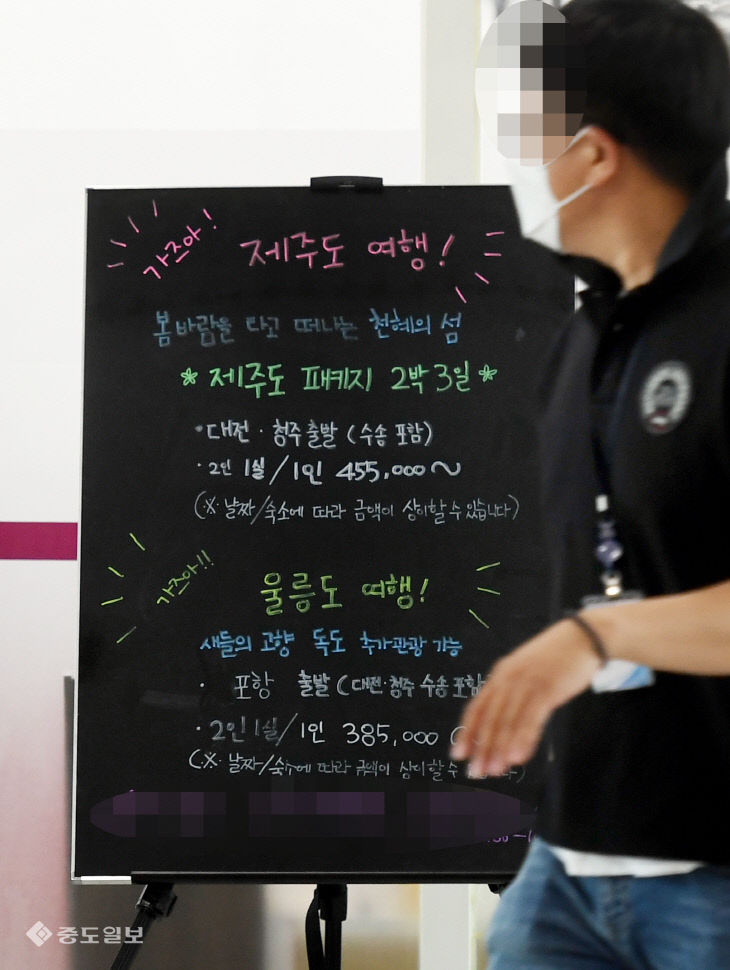 가즈아!
제주도 여행!
봄바람을 타고 떠나는 천혜의 섬
제주도 패키지 2박 3일
· 대전 · 청주 출발 (수송 포함)
· 2인 1실/1인 455,000~
(※ 날짜/숙소에 따라 금액이 상이할 수 있습니다)
가즈아!!
울릉도 여행!
새들의 고향 독도 추가관광 가능
· 포항 출발 (대전·청주 수송 포함
· 2인 1실/1인 385,000
(※ 날짜/숙소에 따라 금액이 상이할 수
중도일보